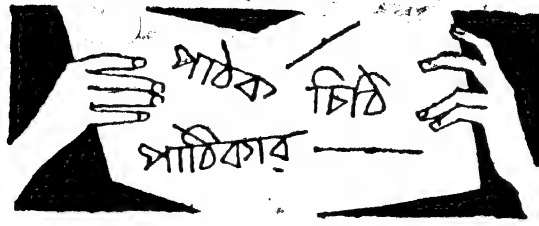 পাঠক
চিঠি
পাঠিকার